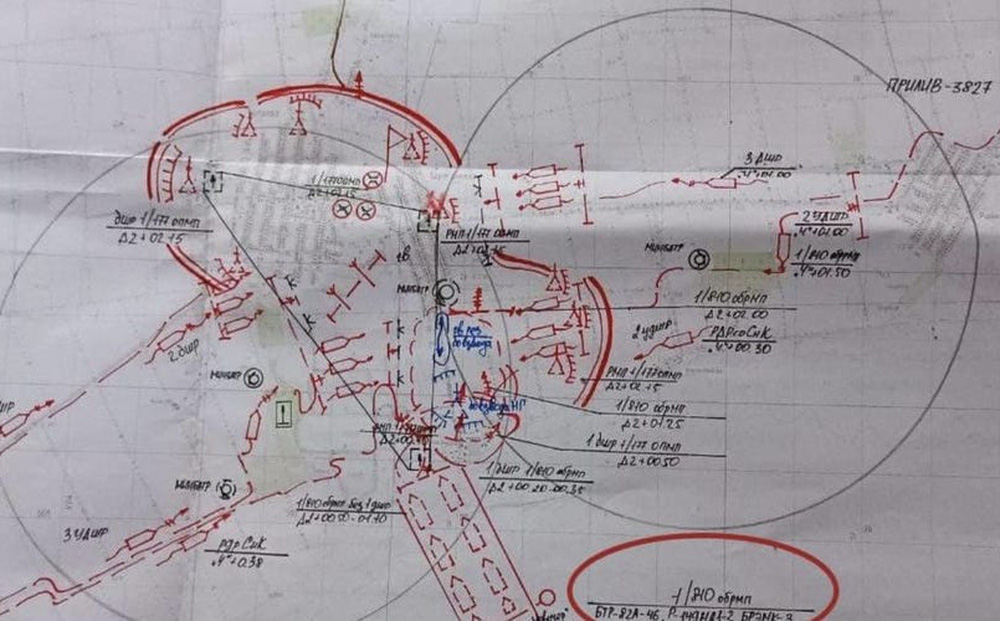 ПРИЛИВ-3827
3 ДШР
.Ч"+01.00
1/177 ОПМП
Д2+02.15
2 УДШР
.Ч"+01.00
дшр 1/177 опмп
Д2+02.15
РНП 1/177 опмп
Д2+02.15
1/810 обрмп
.Ч"+01.50
МИНБАТР
МИНБАТР
1/810 обрмп
Д2+02.00
2 УДШР
РДРсоСиК
.Ч"+00.30
2 ДШР
МИНБАТР
РНП 1/177 опмп
Д2+02.15
1/810 обрмп
Д2+01.25
1 дшр 1/177 ОПМП
Д2+00.50
1/дшр 1/810 обрмп
Д2+00.20-00.35
МИНБАТР
1/810 обрмп без 1 дшр
Д2+00.50-01.10
3 УДШР
рдр СиК
.Ч"+0.38
1/810 обрмп
БТР-82А-46, Р-149МА1-2, БРЭМК-3